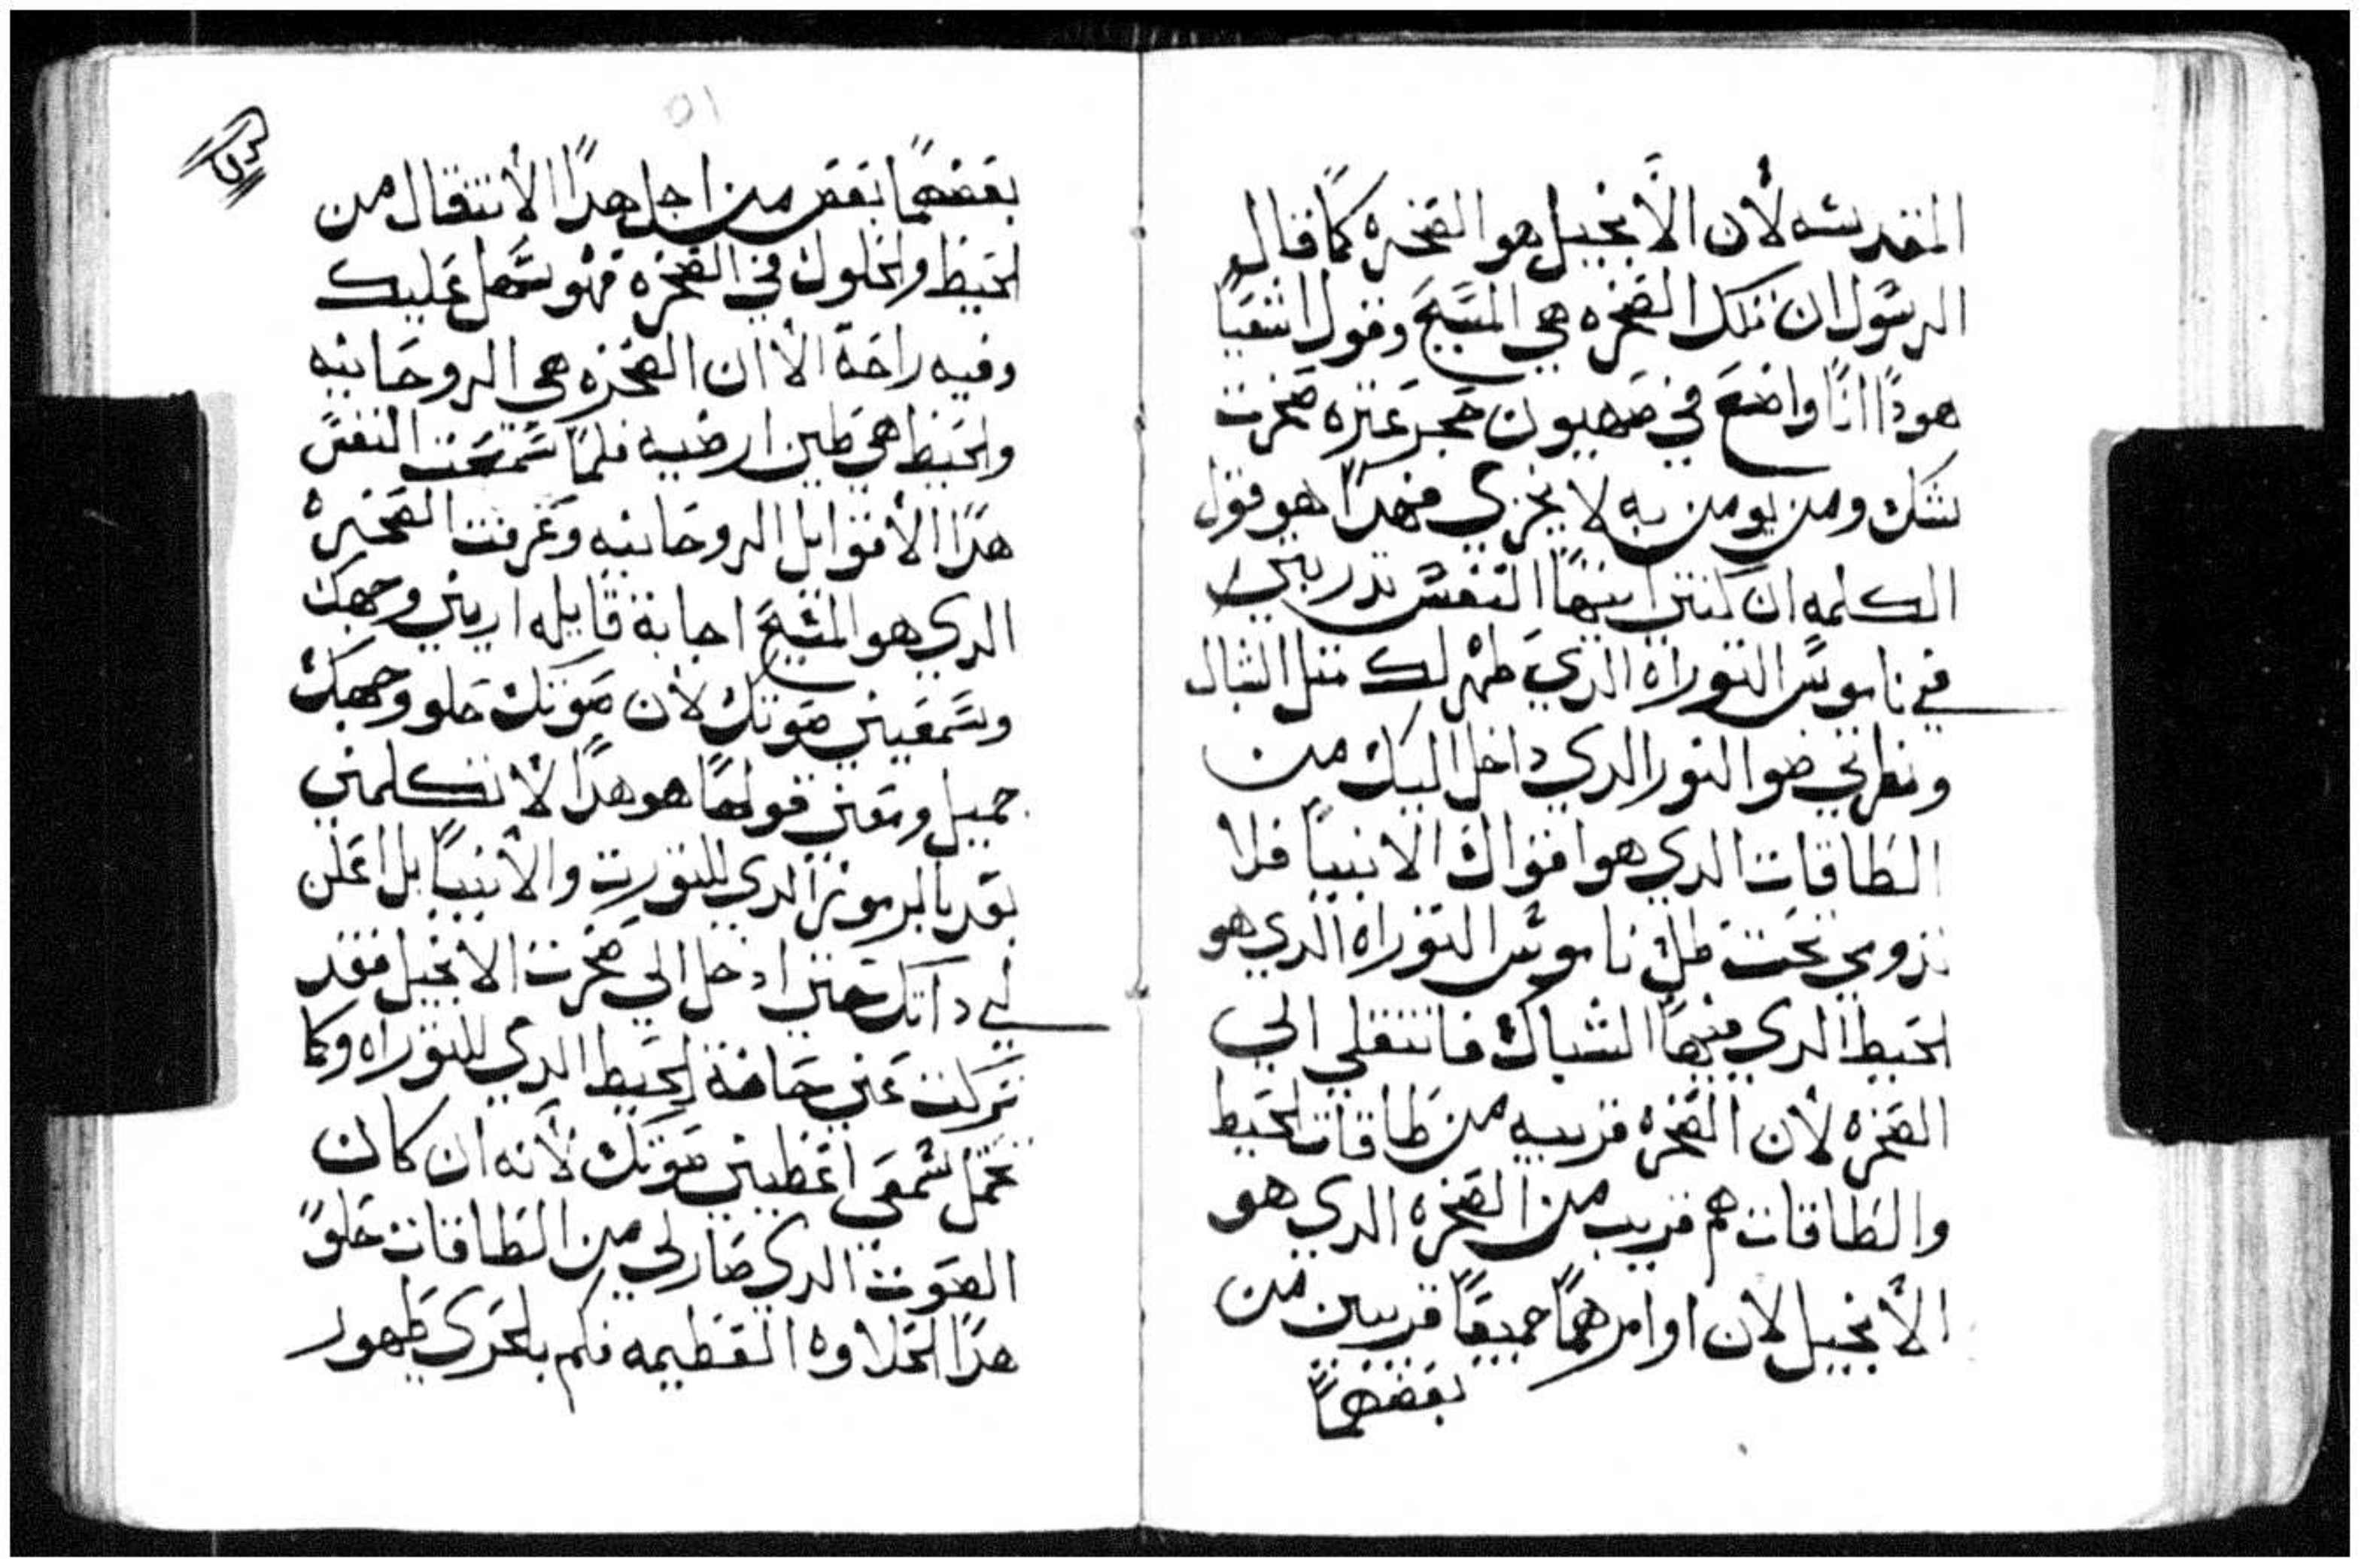 المقدسه لأن الأنجيل هو الصخره كما قال
الرسول ان تلك الصخره هي المسيح وقول اشعيا
هودا انا واضع في صهيون حجر عتره صخرت
شك ومن يومن به لا يخزي فهدا هو قول
الكلمه ان كنتي ايتها النفس تدربتي
في ناموس التوراه الدي ظهر لك متل الشباك
ونظرتي ضوا النور الدي داخل اليك من
الطاقات الدي هو اقوال الانبيا فلا
تدومي تحت ظل ناموس التوراه الدي هو
الحيط الدي فيها الشباك فانتقلي الي
الصخره لأن الصخره قريبه من طاقات الحيط
والطاقات هم قريب من الصخره الدي هو
الأنجيل لأن اوامرهما جميعا قريبين من
بعضهما
٥١
بعضهما بعض من اجل هدا الأنتقال من
الحيط والحلول في الصخره فهو سهل عليك
وفيه راحة الأ ان الصخره هي الروحانيه
والحيط هي طين ارضيه فلما سمعت النفس
هدا الأقوايل الروحانيه وعرفت الصخره
الدي هو المسيح اجابة قايله اريني وجهك
وسمعيني صوتك لأن صوتك حلو ووجهك
جميل ومعني قولها هو هدا لأ تكلمني
بعد بالرموز الدي للتورت والأنبيا بل اعلن
لي داتك حتي ادخل الي صخرت الانجيل فقد
تركت عني حافة الحيط الدي للتوراه وكما
تحمل سمعي اعطيني صوتك لأنه ان كان
الصوت الدي صار لي من الطاقات حلوا
هدا الحلاوه العظيمه فكم بالحري ظهور